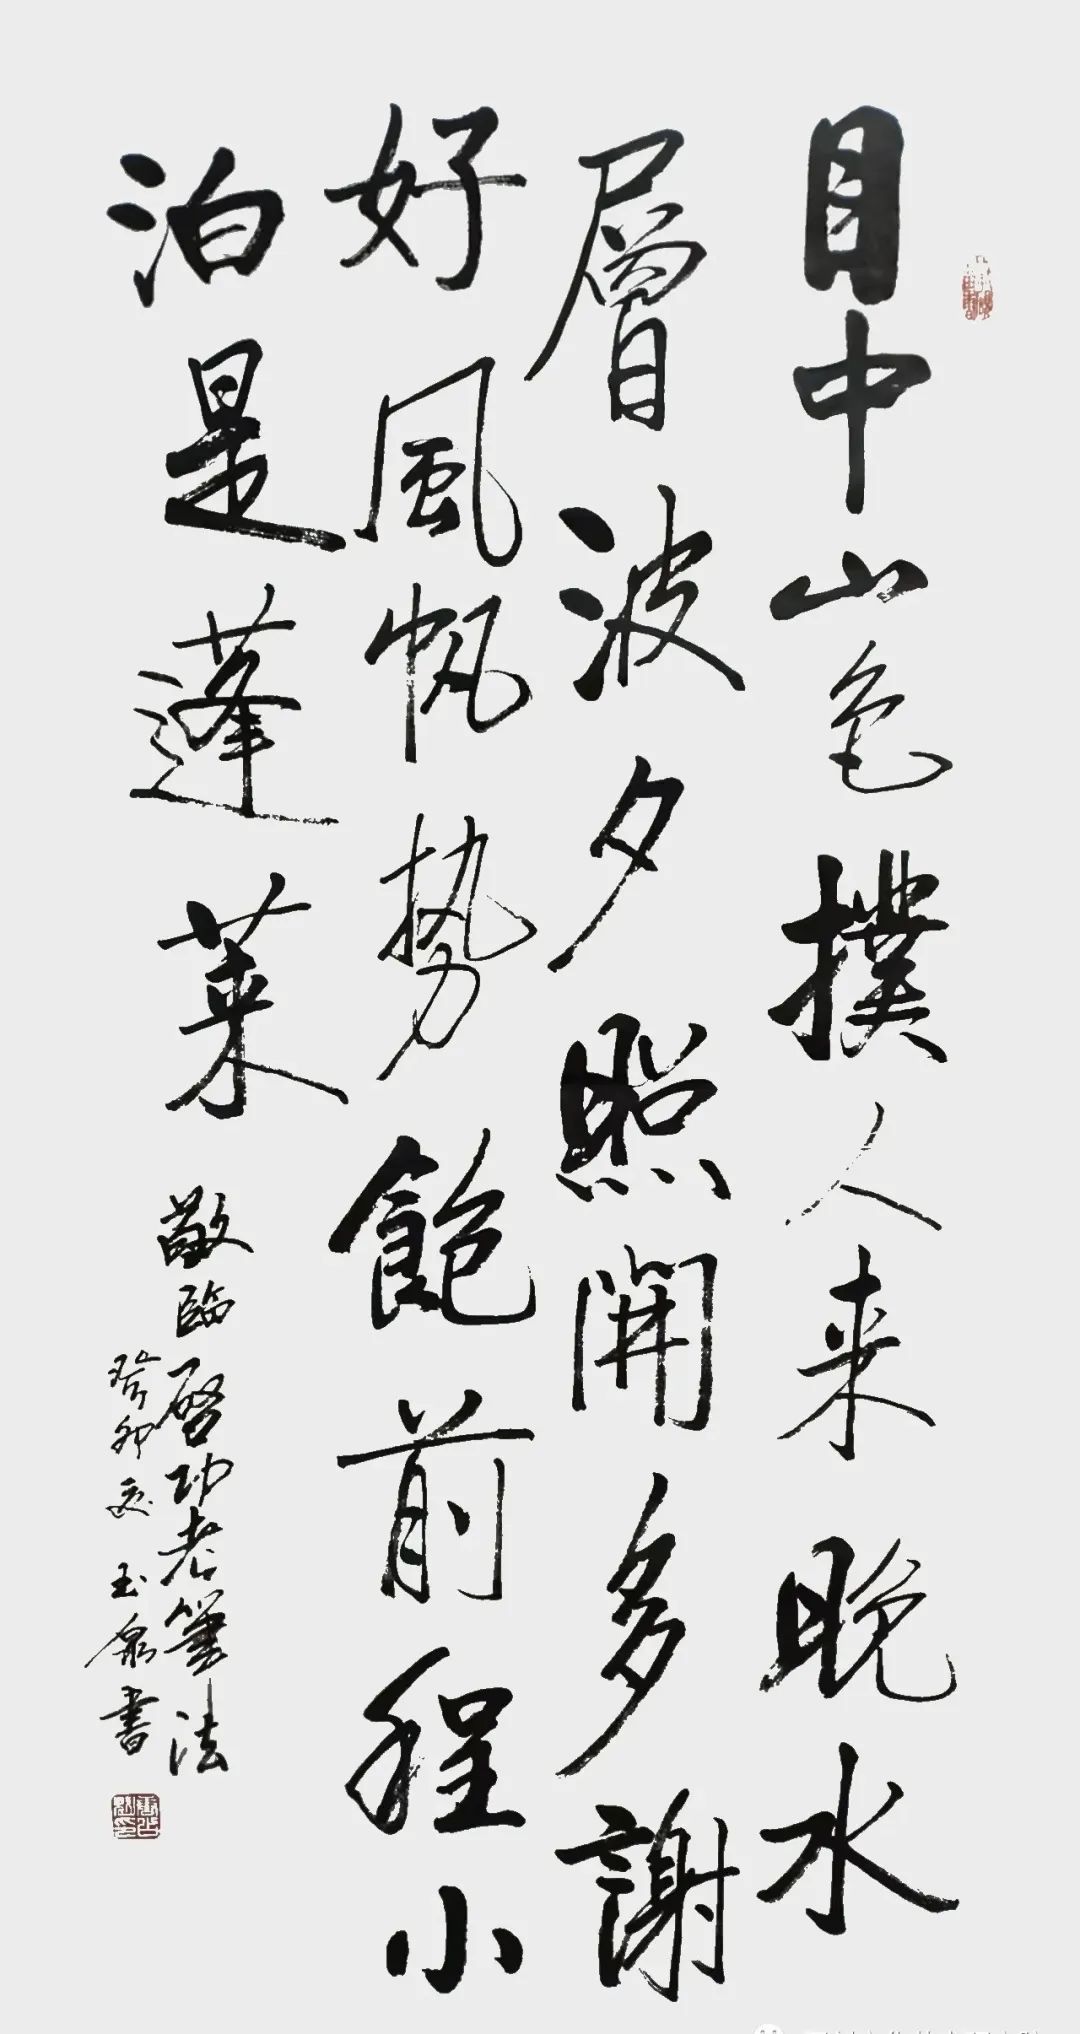 目中山色撲人来晚水
層波夕照開多謝
好風帆勢飽前程小
泊是蓬莱
敬臨啓功老筆法
癸卯夏玉泉書